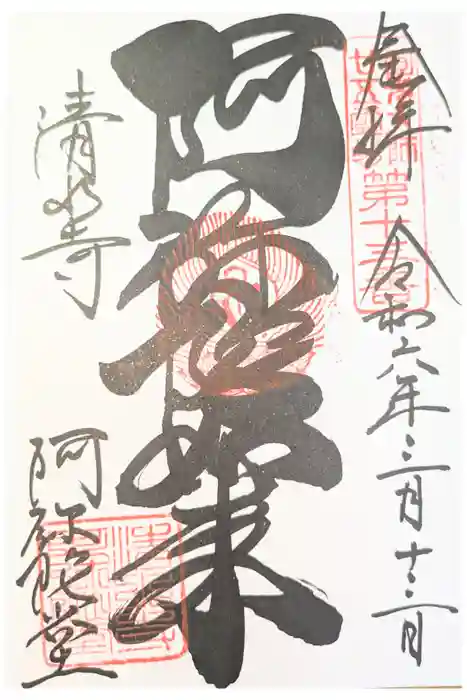 奉拝
第十三番
令和六年三月十二日
阿弥陀如来
清水寺
阿弥陀堂